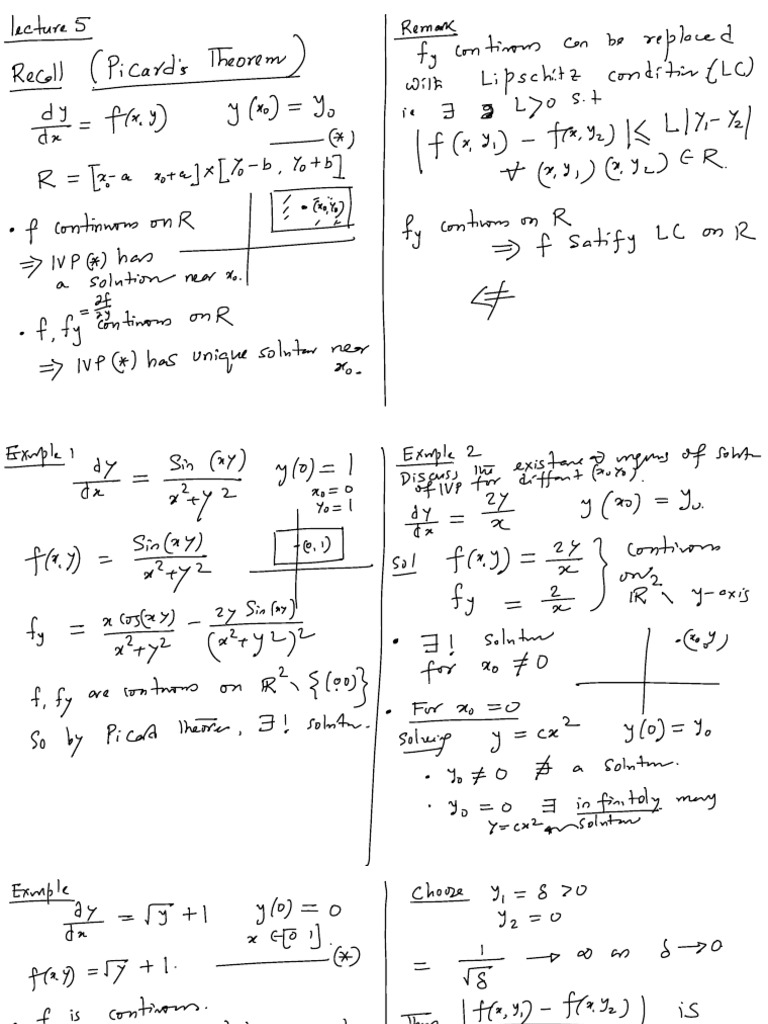 lecture 5
Recall (Picard's Theorem)
dy/dx = f(x,y)   y(x₀) = y₀ —— (*)
R = [x₀-a  x₀+a] × [y₀-b, y₀+b]
• f continuous on R
• (x₀,y₀)
⇒ IVP (*) has
a solution near x₀.
= ∂f/∂y
• f, fy continuous on R
⇒ IVP (*) has unique solution near
x₀.
Remark
fy continuous can be replaced
with Lipschitz condition (LC)
ie ∃ L>0 s.t
|f(x,y₁) - f(x,y₂)| ≤ L|y₁-y₂|
∀ (x,y₁) (x,y₂) ∈ R.
fy continuous on R
⇒ f Satisfy LC on R
⇍
Example 1
dy/dx = Sin(xy)/(x²+y²)   y(0) = 1
x₀=0
y₀=1
f(x,y) = Sin(xy)/(x²+y²)
•(0,1)
fy = x cos(xy)/(x²+y²) - 2y Sin(xy)/(x²+y²)²
f, fy are continuous on ℝ² \ {(0,0)}
So by Picard Theorem, ∃! solution.
Example 2
Discuss the existance uniqueness of solution
of IVP for different (x₀,y₀)
dy/dx = 2y/x   y(x₀) = y₀.
Sol f(x,y) = 2y/x
fy = 2/x
} continuous
on
ℝ² \ y-axis
• ∃! Solution
for x₀ ≠ 0
•(x₀,y)
• For x₀ = 0
Solving y = cx²   y(0) = y₀
• y₀ ≠ 0 ∄ a solution.
• y₀ = 0 ∃ infinitely many
y=cx² solution
Example
dy/dx = √y + 1   y(0) = 0
x ∈ [0 1].
f(x,y) = √y + 1. —— (*)
• f is continuous.
Choose y₁ = δ > 0
y₂ = 0
= 1/√δ → ∞ as δ → 0
Thus |f(x,y₁) - f(x,y₂)| is